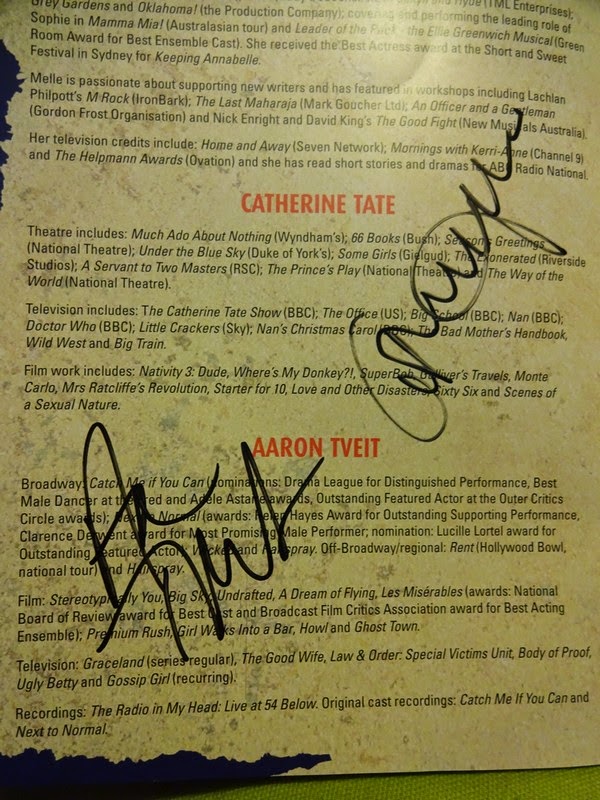 Grey Gardens and Oklahoma! (the Production Company); covering and performing the leading role of
Sophie in Mamma Mia! (Australasian tour) and Leader of the Pack - the Ellie Greenwich Musical (Green
Room Award for Best Ensemble Cast). She received the Best Actress award at the Short and Sweet
Festival in Sydney for Keeping Annabelle.
Melle is passionate about supporting new writers and has featured in workshops including Lachlan
Philpott's M Rock (IronBark); The Last Maharaja (Mark Goucher Ltd); An Officer and a Gentleman
(Gordon Frost Organisation) and Nick Enright and David King's The Good Fight (New Musicals Australia).
Her television credits include: Home and Away (Seven Network); Mornings with Kerri-Anne (Channel 9)
and The Helpmann Awards (Ovation) and she has read short stories and dramas for ABC Radio National.
CATHERINE TATE
Theatre includes: Much Ado About Nothing (Wyndham's); 66 Books (Bush); Season's Greetings
(National Theatre); Under the Blue Sky (Duke of York's); Some Girls (Gielgud); The Exonerated (Riverside
Studios); A Servant to Two Masters (RSC); The Prince's Play (National Theatre) and The Way of the
World (National Theatre).
Television includes: The Catherine Tate Show (BBC); The Office (US); Big School (BBC); Nan (BBC);
Doctor Who (BBC); Little Crackers (Sky); Nan's Christmas Carol (BBC); The Bad Mother's Handbook,
Wild West and Big Train.
Film work includes: Nativity 3: Dude, Where's My Donkey?!, SuperBob, Gulliver's Travels, Monte
Carlo, Mrs Ratcliffe's Revolution, Starter for 10, Love and Other Disasters, Sixty Six and Scenes of
a Sexual Nature.
AARON TVEIT
Broadway: Catch Me if You Can (nominations: Drama League for Distinguished Performance, Best
Male Dancer at the Fred and Adele Astaire awards, Outstanding Featured Actor at the Outer Critics
Circle awards); Next to Normal (awards: Helen Hayes Award for Outstanding Supporting Performance,
Clarence Derwent award for Most Promising Male Performer; nomination: Lucille Lortel award for
Outstanding Featured Actor); Wicked and Hairspray. Off-Broadway/regional: Rent (Hollywood Bowl,
national tour) and Hairspray.
Film: Stereotypically You, Big Sky, Undrafted, A Dream of Flying, Les Misérables (awards: National
Board of Review award for Best Cast and Broadcast Film Critics Association award for Best Acting
Ensemble); Premium Rush, Girl Walks Into a Bar, Howl and Ghost Town.
Television: Graceland (series regular), The Good Wife, Law & Order: Special Victims Unit, Body of Proof,
Ugly Betty and Gossip Girl (recurring).
Recordings: The Radio in My Head: Live at 54 Below. Original cast recordings: Catch Me If You Can and
Next to Normal.